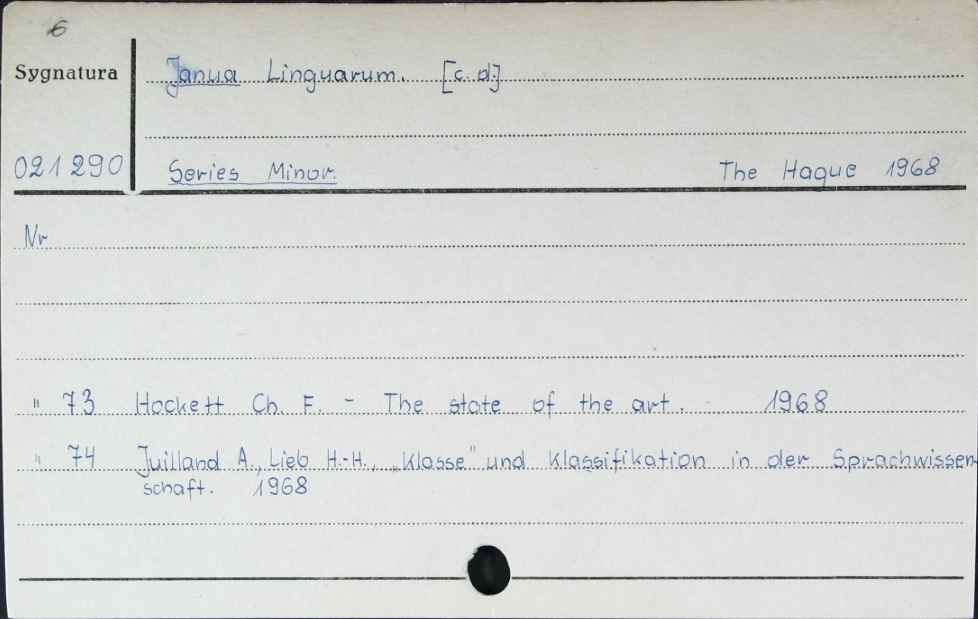 6
Sygnatura
Janua Linguarum. [c. d.]
021290
Series Minor.
The Hague 1968
Nr
" 73 Hockett Ch. F. - The state of the art. 1968
" 74 Juilland A., Lieb H.-H., „Klasse" und Klassifikation in der Sprachwissen
schaft. 1968